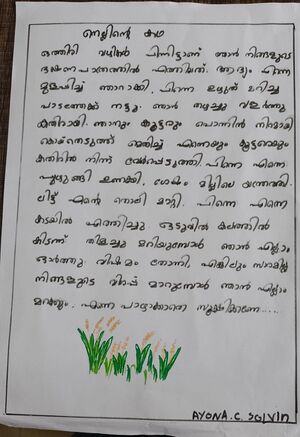 നെല്ലിന്റെ കഥ
ഒത്തിരി വഴികൾ പിന്നിട്ടാണ് ഞാൻ നിങ്ങളുടെ
ഭക്ഷണ പാത്രത്തിൽ എത്തിയത്. ആദ്യം എന്നെ
മുളപ്പിച്ച് ഞാറാക്കി. പിന്നെ ഉഴുത് മറിച്ച
പാടത്തേക്ക് നട്ടു. ഞാൻ തഴച്ചു വളർന്നു
കതിരായി. ഞാനും കൂട്ടരും പൊന്നിൻ നിറമായി
കൊയ്തെടുത്ത് മെതിച്ച് എന്നെയും കൂട്ടരെയും
കതിരിൽ നിന്ന് വേർപ്പെടുത്തി. പിന്നെ എന്നെ
പുഴുങ്ങി ഉണക്കി. ശേഷം മില്ലിലെ യന്ത്രത്തി
ലിട്ട് എന്റെ തൊലി മാറ്റി. പിന്നെ എന്നെ
കടയിൽ എത്തിച്ചു. ഒടുവിൽ കലത്തിൽ
കിടന്ന് തിളച്ചു മറിയുമ്പോൾ ഞാൻ എല്ലാം
ഓർത്തു. വിഷമം തോന്നി, എങ്കിലും സാരമില്ല
നിങ്ങളുടെ വിശപ്പ് മാറുമ്പോൾ ഞാൻ എല്ലാം
മറക്കും. എന്നെ പാഴാക്കാതെ സൂക്ഷിക്കണേ.....
AYONA.C. SOLVIN